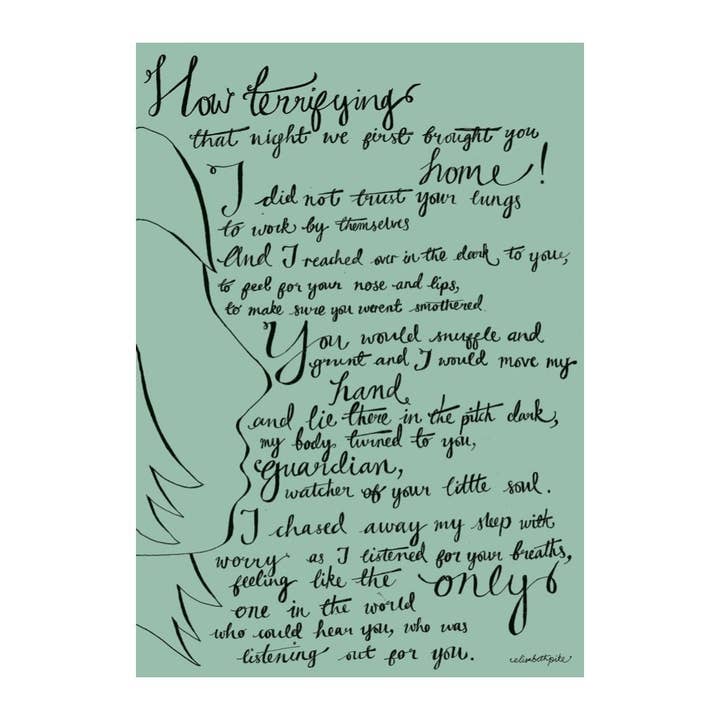 How terrifying
that night we first brought you
home!
I did not trust your lungs
to work by themselves
And I reached over in the dark to you,
to feel for your nose and lips,
to make sure you werent smothered.
You would snuffle and
grunt and I would move my
hand
and lie there in the pitch dark,
my body turned to you,
guardian,
watcher of your little soul.
I chased away my sleep with
worry as I listened for your breaths,
feeling like the only
one in the world
who could hear you, who was
listening out for you.